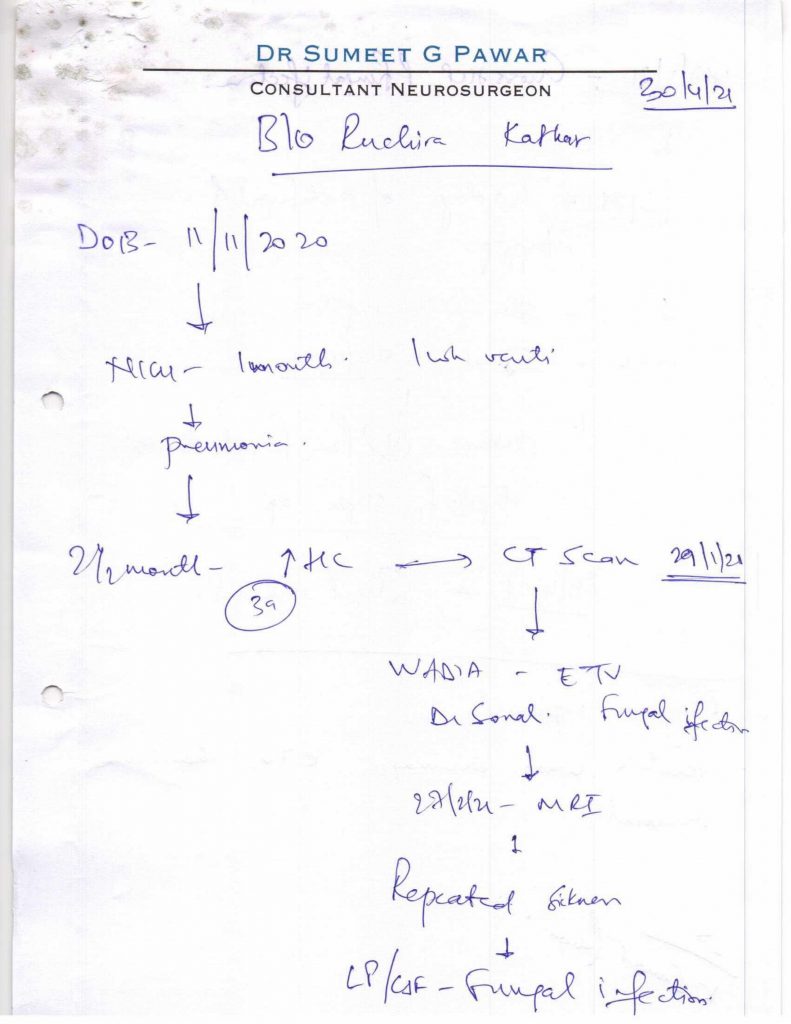 DR SUMEET G PAWAR
CONSULTANT NEUROSURGEON
30/4/21
B/o Ruchira Katkar
DOB - 11/11/2020
↓
NICU - 1 month. 1 wk venti
↓
pneumonia.
↓
2 1/2 month - ↑ HC → CT Scan 29/1/21
39
↓
WADIA - ETV
Dr Sonal. Fungal infection
↓
27/2/21 - MRI
↓
Repeated sickness
↓
LP/CSF - Fungal infection.